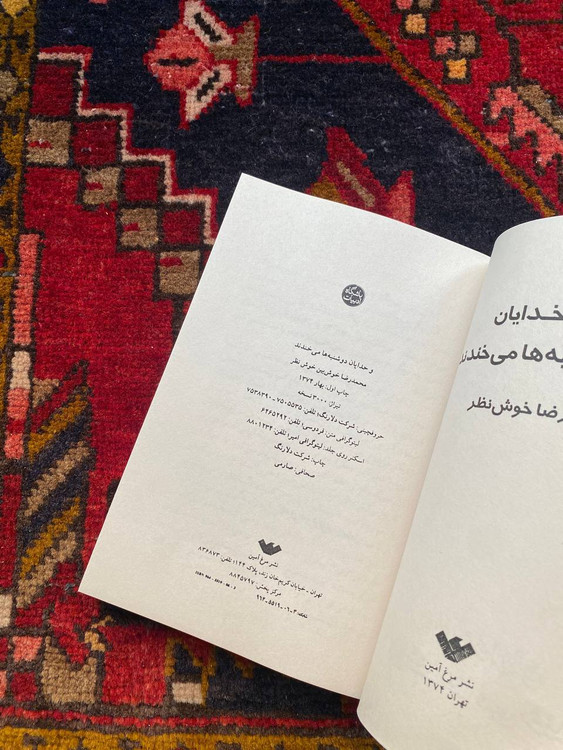 باشگاه
ادبیات
و خدایان دوشنبه‌ها می‌خندند
محمدرضا خوش‌بین خوش‌نظر
چاپ اول: بهار ۱۳۷۴
تیراژ: ۳۰۰۰ نسخه
حروفچینی: شرکت دلارنگ؛ تلفن: ۷۵۰۵۵۳۵-۷۵۳۸۳۹۰
لیتوگرافی متن: فردوسی؛ تلفن: ۶۴۶۵۲۹۲
اسکنر روی جلد: لیتوگرافی امیر؛ تلفن: ۸۸۰۱۲۳۴
چاپ: شرکت دلارنگ
صحافی: صارمی
نشر مرغ آمین
تهران - خیابان کریم‌خان زند، پلاک ۱۴۴؛ تلفن: ۸۳۶۸۷۳
مرکز پخش: ۸۸۴۵۷۹۷
خدایان
به‌ها می‌خندند
رضا خوش‌نظر
نشر مرغ آمین
تهران ۱۳۷۴